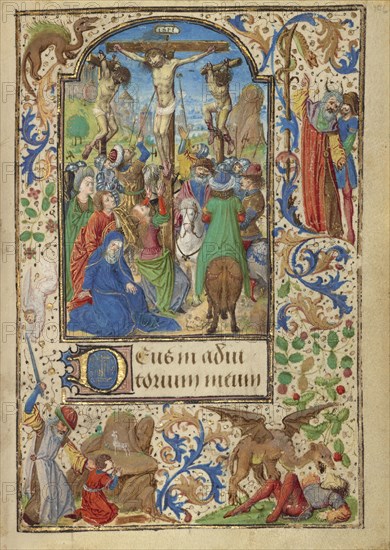 INRI
Deus in adiu
torium meum